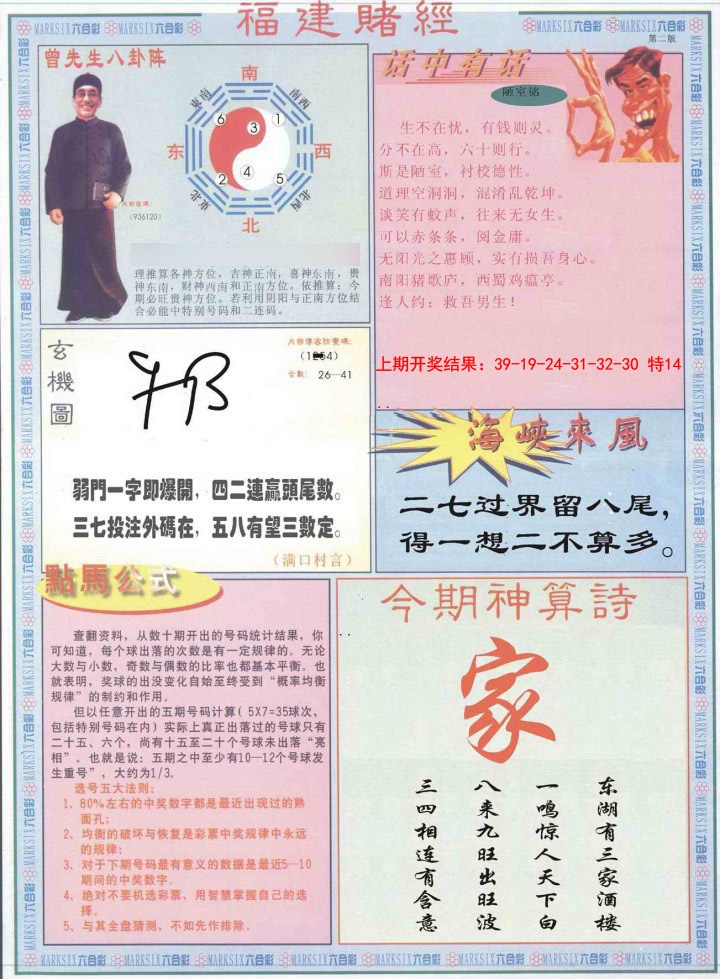 福建賭經
MARKSIX六合彩 MARKSIX六合彩
MARKSIX六合彩 MARKSIX六合彩
第二版
曾先生八卦阵
南
東南
南西
⑥
③
①
东
西
②
④
⑤
東北
北西
北
内部密碼:
(936120)
理推算各神方位，吉神正南，喜神东南，贵
神东南，财神西南和正南方位。依推算：今
期必旺贵神方位。若利用阴阳与正南方位结
合必能中特别号码和二连码。
话中有话
陋室铭
生不在忧，有钱则灵。
分不在高，六十则行。
斯是陋室，衬校德性。
道理空洞洞，混淆乱乾坤。
谈笑有蚊声，往来无女生。
可以赤条条，阅金庸。
无阳光之惠顾，实有损吾身心。
南阳猪歌庐，西蜀鸡瘟亭。
逢人约：救吾男生！
上期开奖结果：39-19-24-31-32-30 特14
玄機圖
合數： 26—41
弱門一字即爆開，四二連贏頭尾數。
三七投注外碼在，五八有望三數定。
（满口村言）
海峽來風
二七过界留八尾，
得一想二不算多。
點馬公式
查翻资料，从数十期开出的号码统计结果，你
可知道，每个球出落的次数是有一定规律的。无论
大数与小数，奇数与偶数的比率也都基本平衡。也
就表明，奖球的出没变化自始至终受到“概率均衡
规律”的制约和作用。
但以任意开出的五期号码计算（5X7=35球次，
包括特别号码在内）实际上真正出落过的号球只有
二十五、六个，尚有十五至二十个号球未出落“亮
相”。也就是说：五期之中至少有10—12个号球发
生重号”，大约为1/3。
选号五大法则：
1、80%左右的中奖数字都是最近出现过的熟
面孔；
2、均衡的破坏与恢复是彩票中奖规律中永远
的规律；
3、对于下期号码最有意义的数据是最近5—10
期间的中奖数字.
4、绝对不要机选彩票，用智慧掌握自己的选
择.
5、与其全盘猜测，不如先作排除.
今期神算詩
家
东湖有三家酒楼
一鸣惊人天下白
八来九旺出旺波
三四相连有含意
MARKSIX六合彩 MARKSIX六合彩 MARKSIX六合彩 MARKSIX六合彩 MARKSIX六合彩 MARKSIX六合彩 MARKSIX六合彩 MARKSIX六合彩